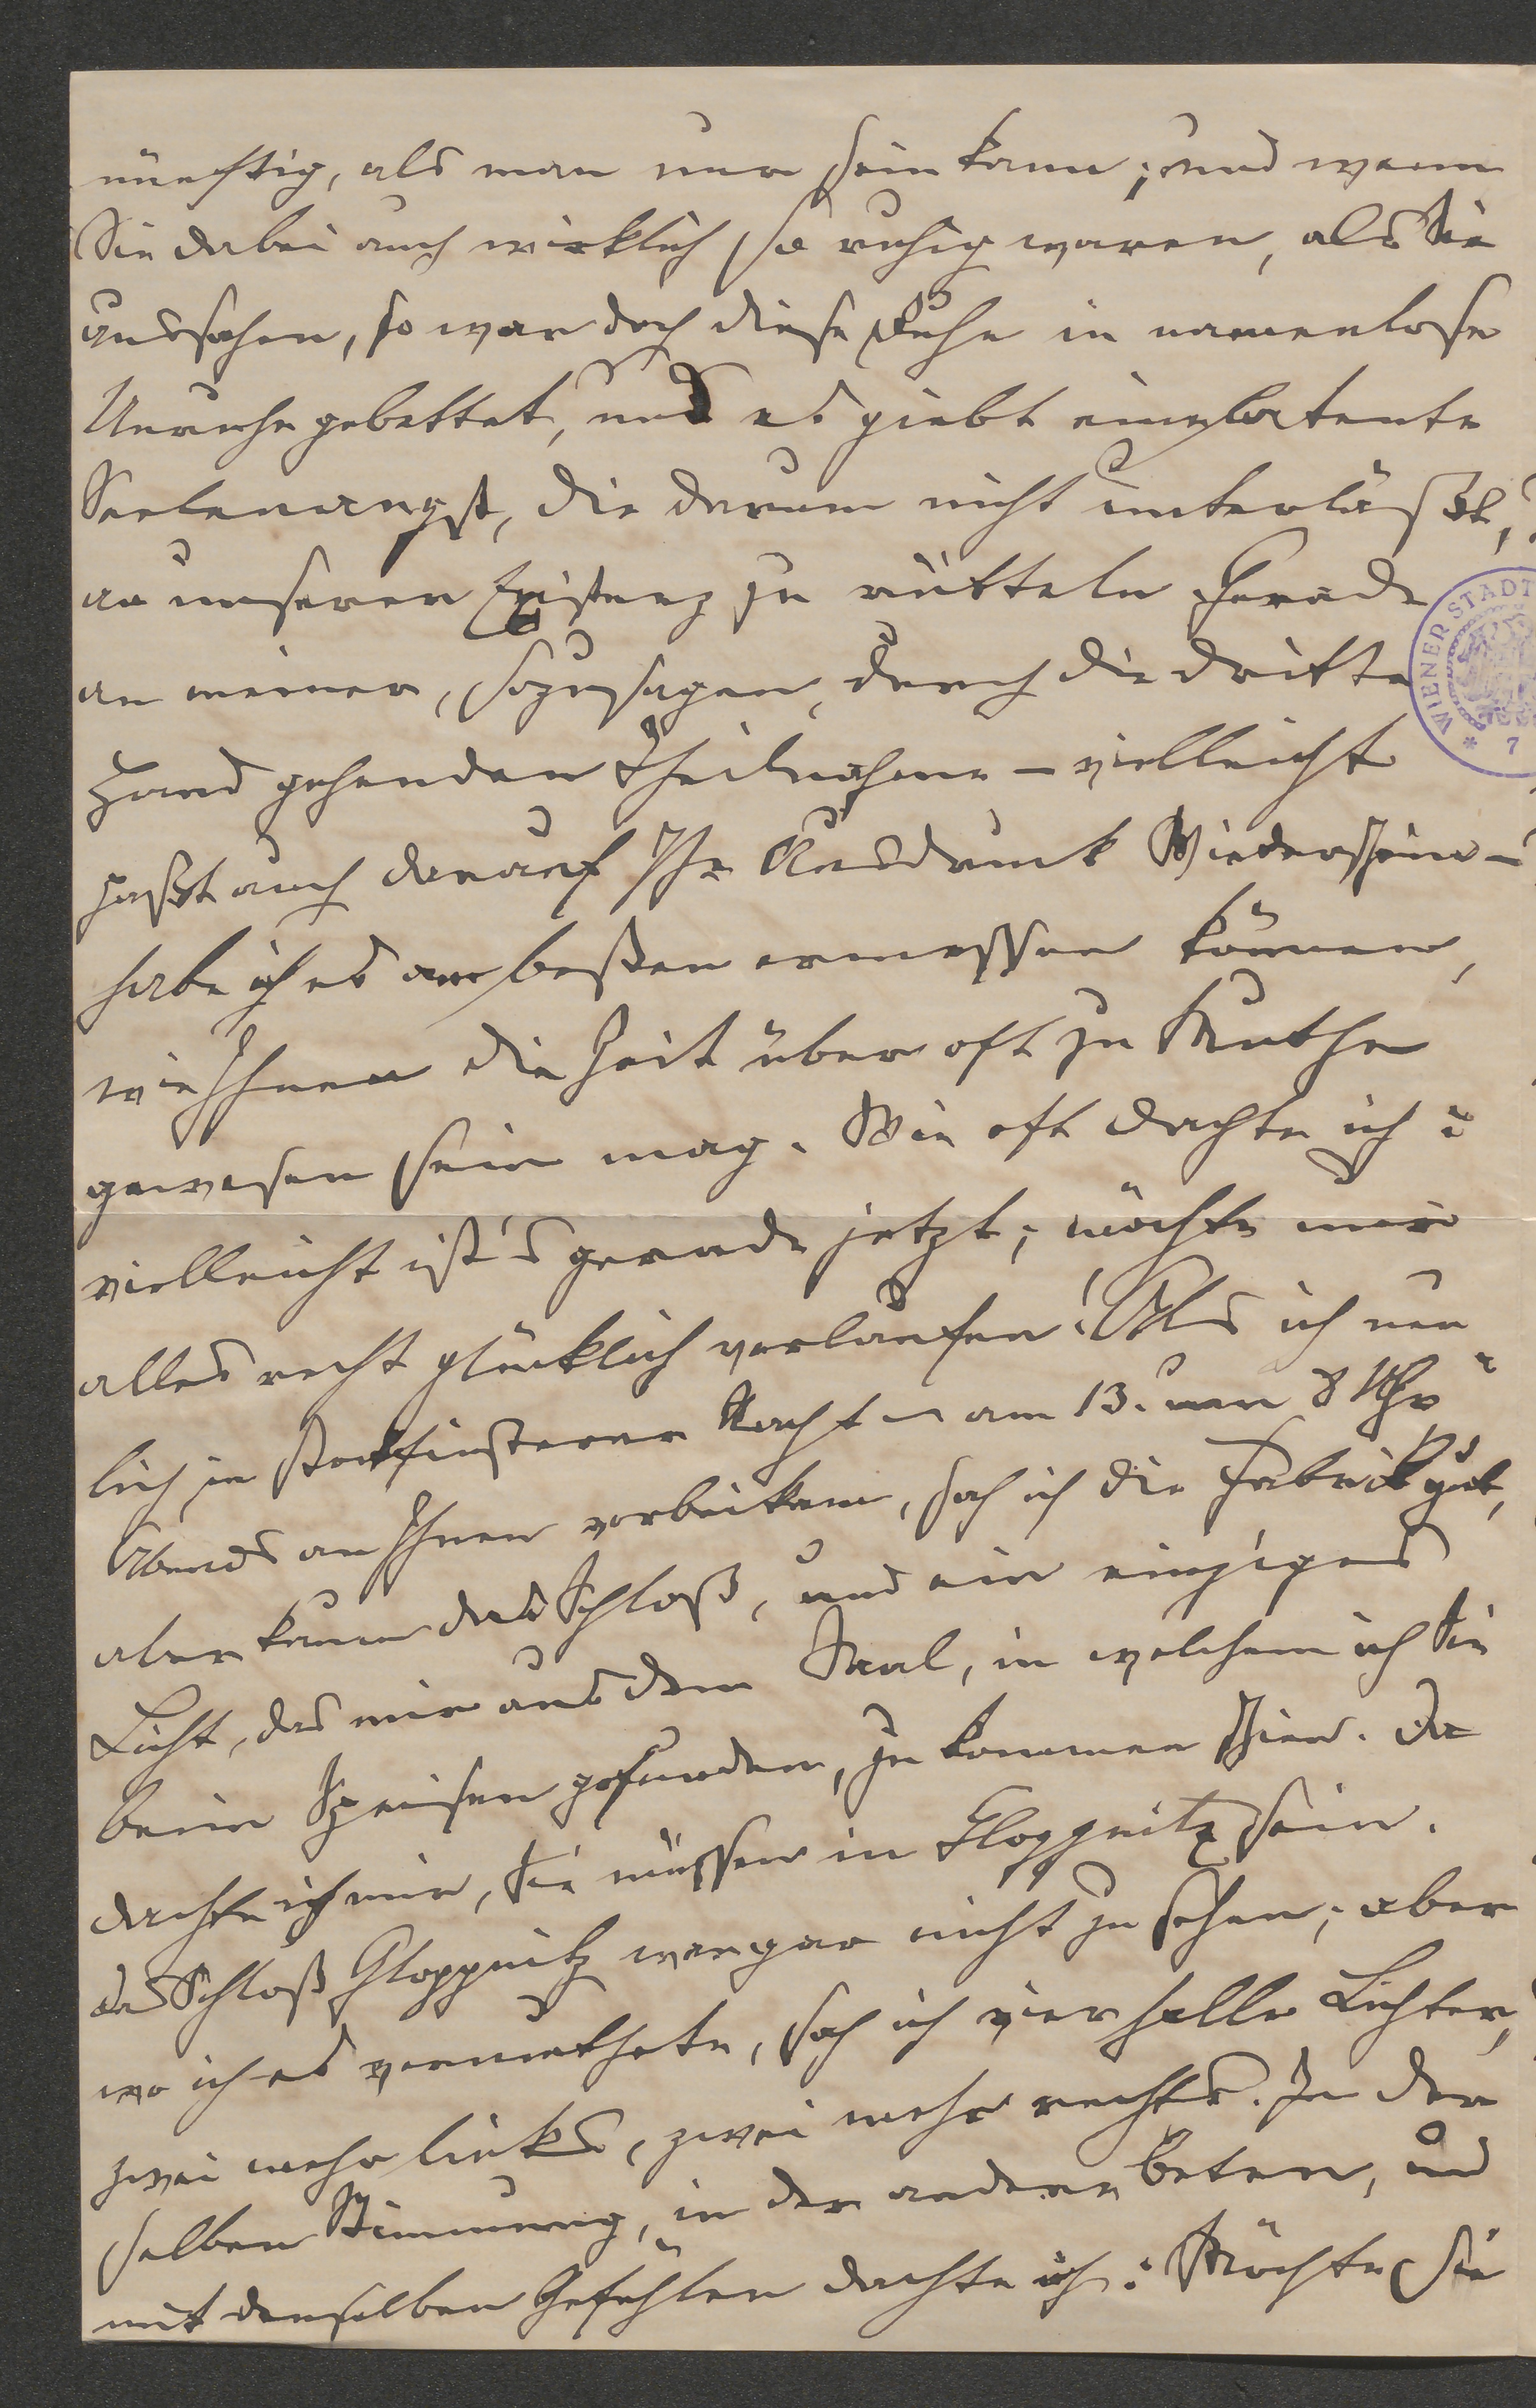 nünftig, als man nur sein kann; und wenn
Sie dabei auch wirklich so ruhig waren, als Sie
aussahen, so war doch diese Ruhe in namenlose
Unruhe gebettet, und es giebt eine latente
Seelenangst, die darum nicht unterläßt,
an unserer Existenz zu rütteln. Gerade
an meiner, sozusagen, durch die dritte
Hand gehenden Theilnahme – vielleicht
paßt auch darauf Ihr Ausdruck Wiederschein –
habe ich es am besten ermessen können,
wie Ihnen die Zeit über oft zu Muthe
gewesen sein mag. Wie oft dachte ich:
vielleicht ist's gerade jetzt; möchte nur
alles recht glücklich verlaufen! Als ich neu
lich in stockfinsterer Nacht – am 13. um 8 Uhr
Abends an Ihnen vorbeikam, sah ich die Fabrik gut,
aber kaum das Schloß, und ein einziges
Licht, das mir aus dem Saal, in welchem ich Sie
beim Speisen gefunden, zu kommen schien. Da
dachte ich mir, Sie müssen in Gloggnitz sein.
Das Schloß Gloggnitz war gar nicht zu sehen; aber
wo ich es vermuthete, sah ich vier helle Lichter,
zwei mehr links, zwei mehr rechts. In der
selben Stimmung, in der andere beten, und
mit denselben Gefühlen dachte ich: Möchte sie
WIENER STADT
* 7